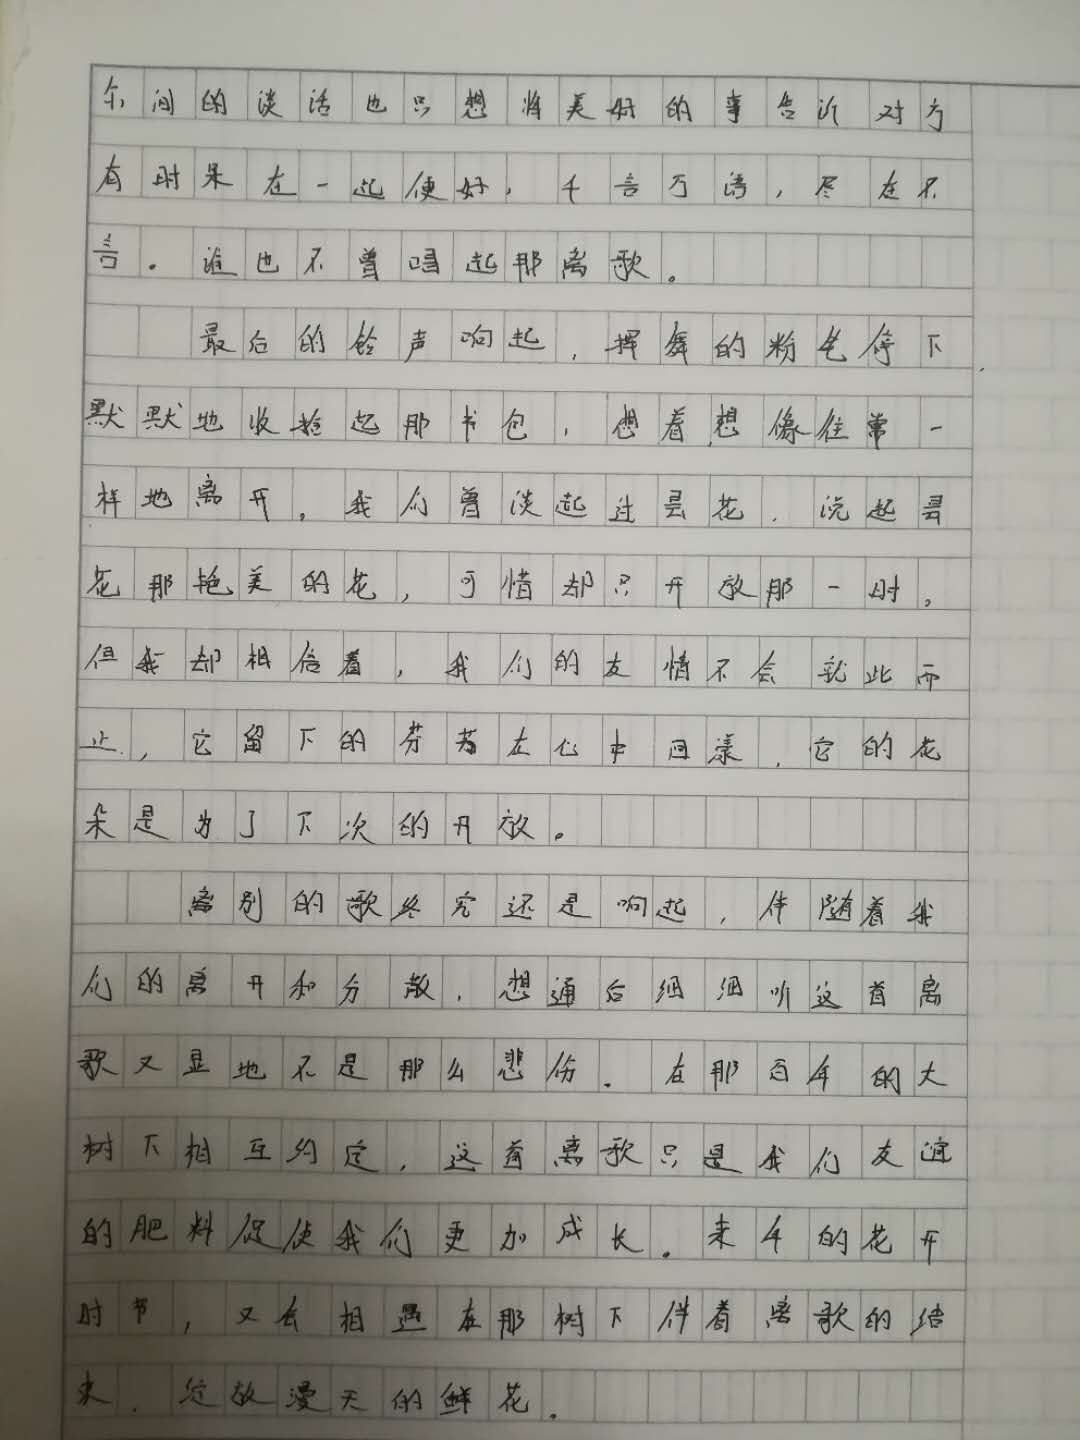 尔间的谈话也只想将美好的事告诉对方
有时呆在一起便好,千言万语,尽在不
言。谁也不曾唱起那离歌。
最后的铃声响起,挥舞的粉笔停下,
默默地收拾起那书包,想着想像往常一
样地离开。我们曾谈起过昙花,说起昙
花那艳美的花,可惜却只开放那一时。
但我却相信着,我们的友情不会就此而
止,它留下的芬芳在心中回漾,它的花
朵是为了下次的开放。
离别的歌终究还是响起,伴随着我
们的离开和分散,想通后细细听这首离
歌又显地不是那么悲伤。在那百年的大
树下相互约定,这首离歌只是我们友谊
的肥料促使我们更加成长。来年的花开
时节,又会相遇在那树下伴着离歌的结
束,绽放漫天的鲜花。